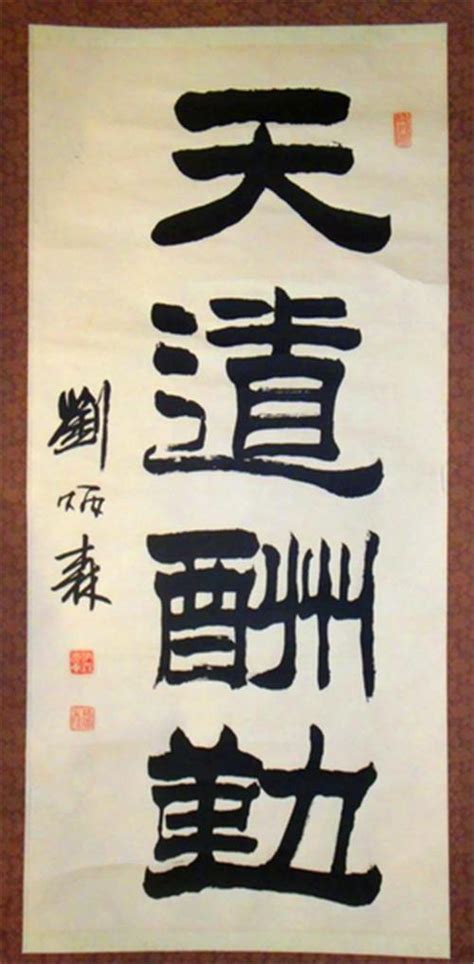 天道酬勤
劉炳森